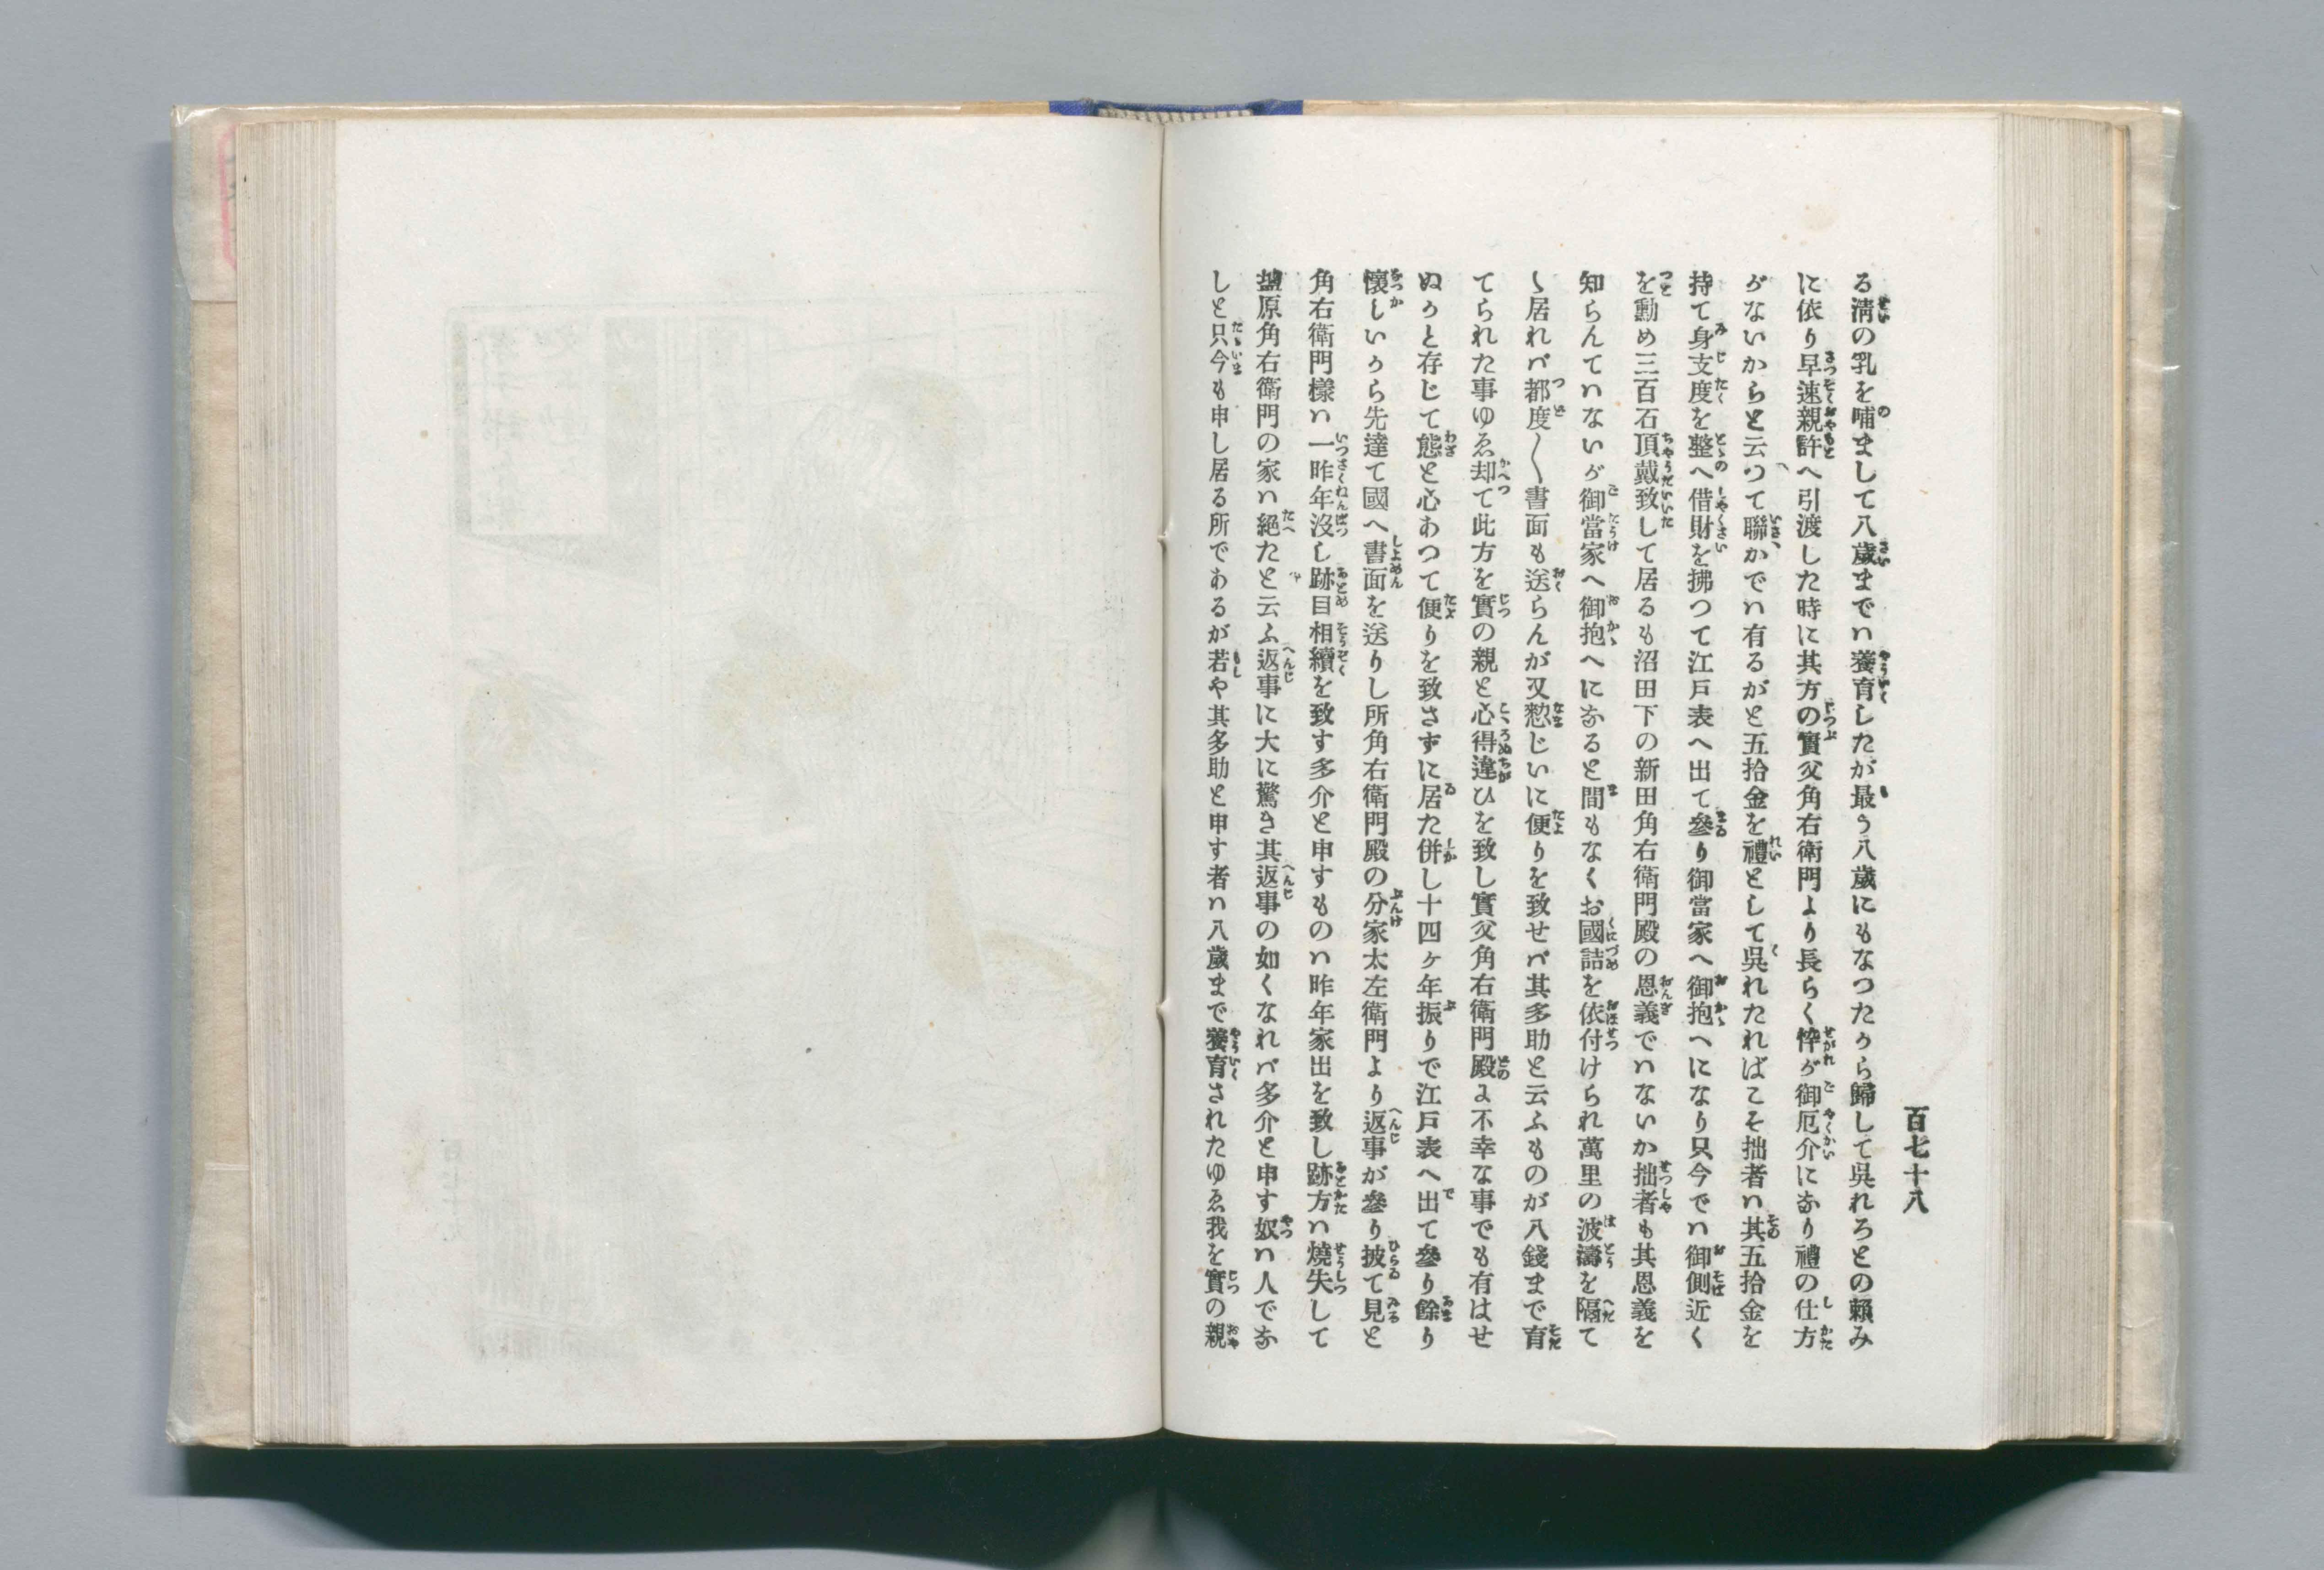 百七十八
る淸の乳を哺まして八歲までハ養育したが最う八歲にもなつたから歸して吳れろとの賴み
に依り早速親許へ引渡した時に其方の實父角右衛門より長らく悴が御厄介になり禮の仕方
がないからと云つて聯かでハ有るがと五拾金を禮として吳れたればこそ拙者ハ其五拾金を
持て身支度を整へ借財を拂つて江戸表へ出て參り御當家へ御抱へになり只今でハ御側近く
を勤め三百石頂戴致して居るも沼田下の新田角右衛門殿の恩義でハないか拙者も其恩義を
知らんてハないが御當家へ御抱へになると間もなくお國詰を依付けられ萬里の波濤を隔て
〻居れバ都度〱書面も送らんが又愸じいに便りを致せバ其多助と云ふものが八錢まで育
てられた事ゆゑ却て此方を實の親と心得違ひを致し實父角右衛門殿に不幸な事でも有はせ
ぬかと存じて態と心あつて便りを致さずに居た併し十四ヶ年振りで江戸表へ出て參り餘り
懷しいから先達て國へ書面を送りし所角右衛門殿の分家太左衛門より返事が參り披て見と
角右衛門樣ハ一昨年沒し跡目相續を致す多介と申すものハ昨年家出を致し跡方ハ燒失して
鹽原角右衛門の家ハ絕たと云ふ返事に大に驚き其返事の如くなれバ多介と申す奴ハ人でな
しと只今も申し居る所であるが若や其多助と申す者ハ八歲まで養育されたゆゑ我を實の親